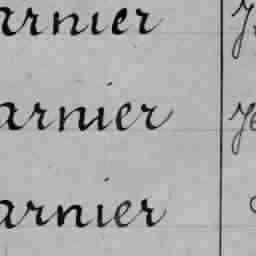 arnier
arnier
arnier